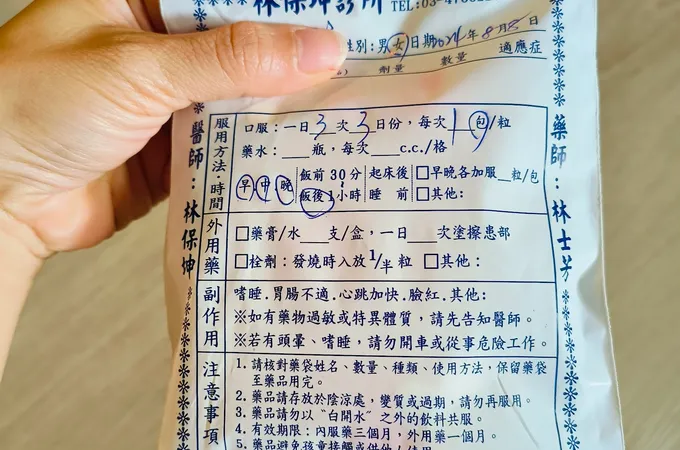 林保坤診所 TEL:03-4
性別：男女日期2024年8月8日
劑量 數量 適應症
醫師：林保坤
藥師：林士芳
服用方法·時間
口服：一日3次3日份，每次1包/粒
藥水：___瓶，每次___c.c./格
早 中 晚 飯前30分 起床後 □早晚各加服_粒/包
飯後1小時 睡 前 □其他：
外用藥
□藥膏/水___支/盒，一日___次塗擦患部
□栓劑：發燒時入放1/半粒 □其他：
副作用
嗜睡.胃腸不適.心跳加快.臉紅.其他：
※如有藥物過敏或特異體質，請先告知醫師。
※若有頭暈、嗜睡，請勿開車或從事危險工作。
注意事項
1. 請核對藥袋姓名、數量、種類、使用方法，保留藥袋
至藥品用完。
2. 藥品請存放於陰涼處，變質或過期，請勿再服用。
3. 藥品請勿以“白開水”之外的飲料共服。
4. 有效期限：內服藥三個月，外用藥一個月。
5. 藥品避免孩童接觸或供他人使用